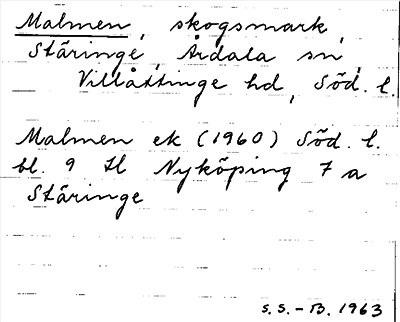 Malmen, skogsmark,
Stäringe, Årdala sn,
Villåttinge hd, Söd. l.
Malmen ek (1960) Söd. l.
bl. 9 Il Nyköping 7 a
Stäringe
S.S.-B. 1963